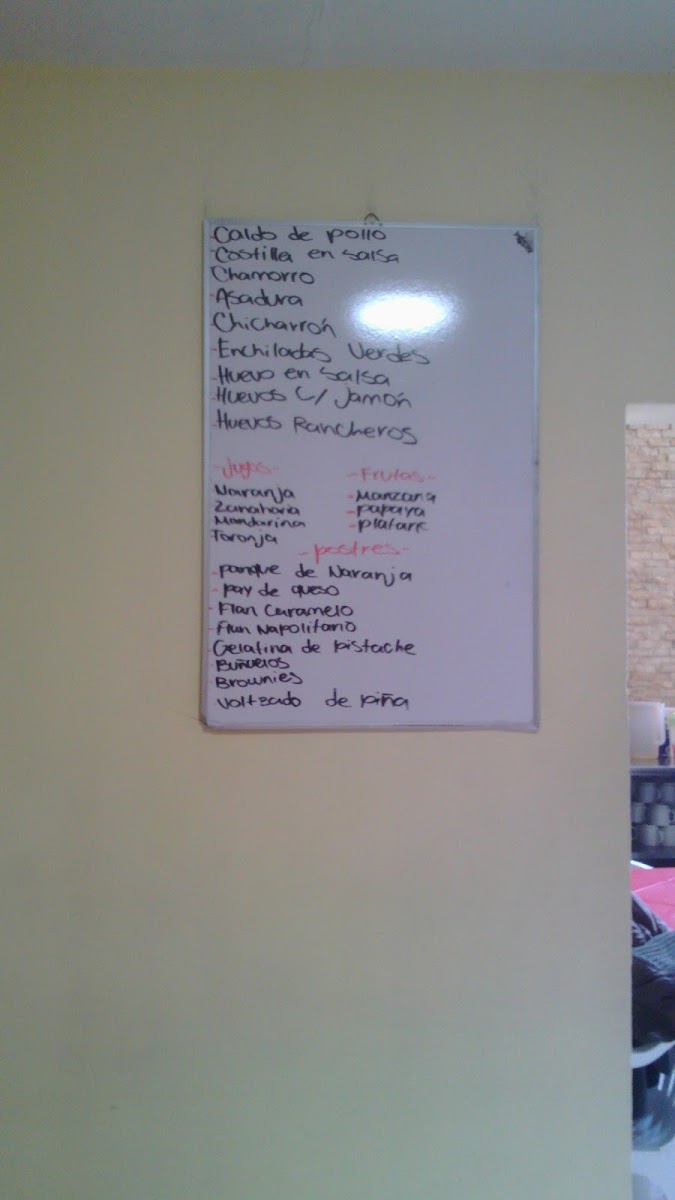 -Caldo de pollo
-Costilla en salsa
-Chamorro
-Asadura
-Chicharrón
-Enchiladas Verdes
-Huevo en salsa
-Huevos C/ Jamón
-Huevos Rancheros
-Jugos-
-Frutas-
Naranja
-Manzana
Zanahoria
-papaya
Mandarina
-platano
Toronja
-postres-
-panque de Naranja
-pay de queso
-Flan Caramelo
-Flan Napolitano
-Gelatina de pistache
-Buñuelos
-Brownies
-Volteado de piña